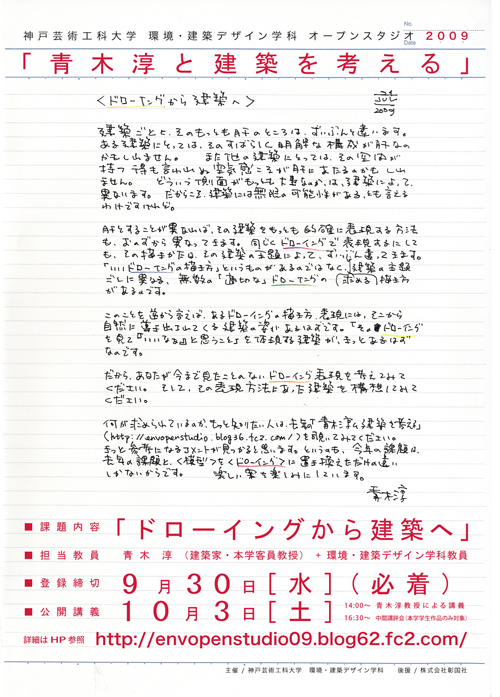 No.
神戸芸術工科大学 環境・建築デザイン学科 オープンスタジオ 2009
Date
「青木淳と建築を考える」
〈ドローイングから建築へ〉
21
JUL
2009
建築ごとに、そのもっとも肝のところは、ずいぶんと違います。
ある建築にとっては、そのすばらしく明解な構成が肝なの
かもしれません。 また他の建築にとっては、その空間が
持つ得も言われぬ空気感こそが肝にあたるのかもしれ
ません。 どういう側面がもっとも大事なのか、は、建築によって、
異なります。だからこそ、建築には無限の可能性がある、とも言える
わけですけれど。
肝とすることが異なれば、その建築をもっとも的確に表現する方法
も、おのずから異なってきます。同じくドローイングで表現するにして
も、その描きかたは、その建築の主題によって、ずいぶん違ってきます。
「いいドローイングの描き方」というものがあるのではなく、建築の主題
ごとに異なる、無数の「適切な」ドローイングの(求める)描き方
があるのです。
このことを逆から言えば、あるドローイングの描き方、表現には、そこから
自然に導き出されてくる建築の姿があるはずです。「そのドローイング
を見て『いいなあ』と思うこと」を体現する建築が、きっとあるはず
なのです。
だから、あなたが今まで見たことのないドローイング表現を考えてみて
ください。 そして、その表現方法にあった建築を構想してみて
ください。
何が求められているのか、もっと知りたい人は、去年の「青木淳と建築を考える」
(http://envopenstudio.blog36.fc2.com/)を覗いてみてください。
きっと参考になるコメントが見つかると思います。というのも、今年の課題は、
去年の課題と、〈模型〉を〈ドローイング〉に置き換えただけの違い
しかないからです。 楽しい案を楽しみにしています。
青木淳
■ 課題内容 「ドローイングから建築へ」
■ 担当教員 青木 淳 (建築家・本学客員教授) + 環境・建築デザイン学科教員
■ 登録締切 9月30日[水](必着)
■ 公開講義 10月3日[土] 14:00〜 青木淳教授による講義
16:30〜 中間講評会(本学学生作品のみ対象)
詳細は HP 参照 http://envopenstudio09.blog62.fc2.com/
主催 / 神戸芸術工科大学 環境・建築デザイン学科 後援 / 株式会社彰国社